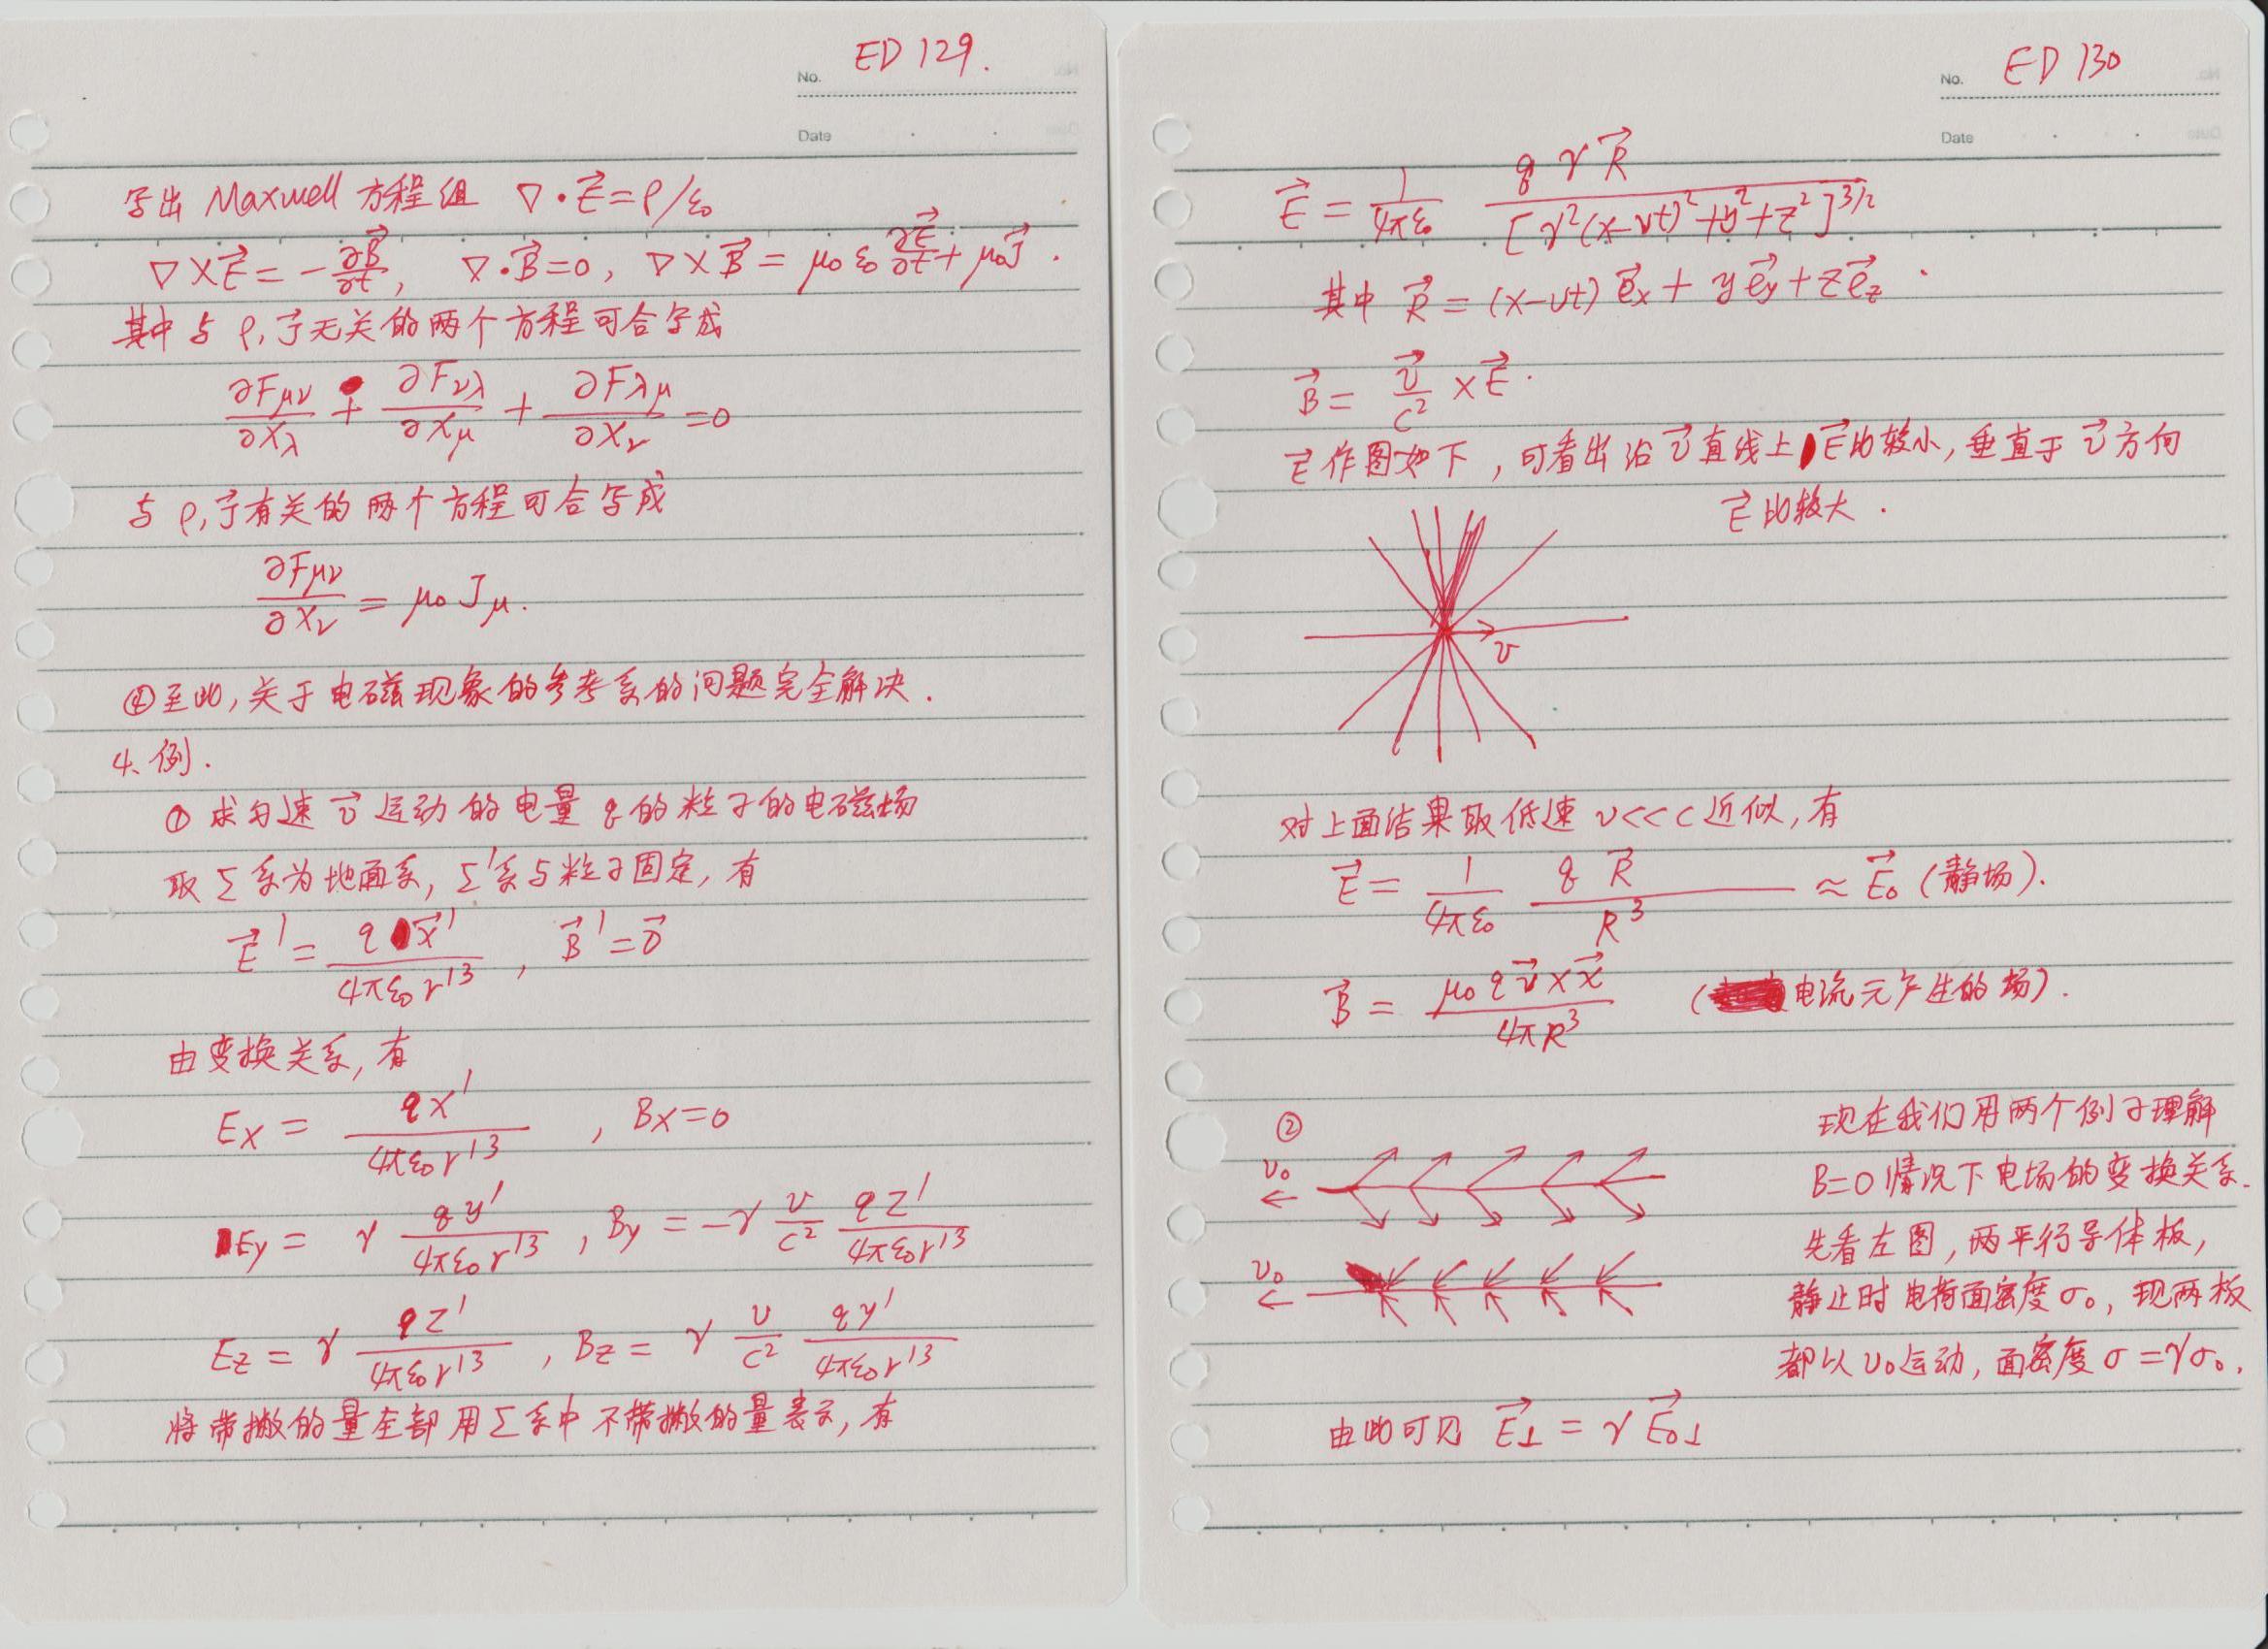 No. ED 129.
Date
写出 Maxwell 方程组 ∇·E⃗=ρ/ε₀
∇×E⃗=-∂B⃗/∂t, ∇·B⃗=0, ∇×B⃗=μ₀ε₀∂E⃗/∂t+μ₀J⃗.
其中与ρ,J⃗无关的两个方程可合写成
∂Fμν/∂xλ + ∂Fνλ/∂xμ + ∂Fλμ/∂xν =0
与ρ,J⃗有关的两个方程可合写成
∂Fμν/∂xν = μ₀Jμ.
④至此,关于电磁现象的参考系的问题完全解决.
4、例.
① 求匀速v⃗运动的电量q的粒子的电磁场
取Σ系为地面系,Σ'系与粒子固定,有
E⃗' = qx⃗'/4πε₀r'³ , B⃗'=0⃗
由变换关系,有
Ex = qx'/4πε₀r'³ , Bx=0
Ey = γ qy'/4πε₀r'³ , By = -γ v/c² qz'/4πε₀r'³
Ez = γ qz'/4πε₀r'³ , Bz = γ v/c² qy'/4πε₀r'³
将带撇的量全部用Σ系中不带撇的量表示,有
No. ED 130
Date
E⃗ = 1/4πε₀ qγR⃗/[γ²(x-vt)²+y²+z²]^3/2
其中 R⃗ = (x-vt)e⃗x + ye⃗y + ze⃗z.
B⃗ = v⃗/c² × E⃗.
E⃗作图如下,可看出沿v⃗直线上E⃗比较小,垂直于v⃗方向
E⃗比较大.
v
对上面结果取低速 v<<c 近似,有
E⃗ = 1/4πε₀ qR⃗/R³ ≈ E⃗₀ (静场).
B⃗ = μ₀qv⃗×x⃗/4πR³ (电流元产生的场).
②
v₀
v₀
现在我们用两个例子理解
B=0情况下电场的变换关系.
先看左图,两平行导体板,
静止时电荷面密度σ₀,现两板
都以v₀运动,面密度σ=γσ₀,
由此可见 E⃗⊥ = γE⃗₀⊥